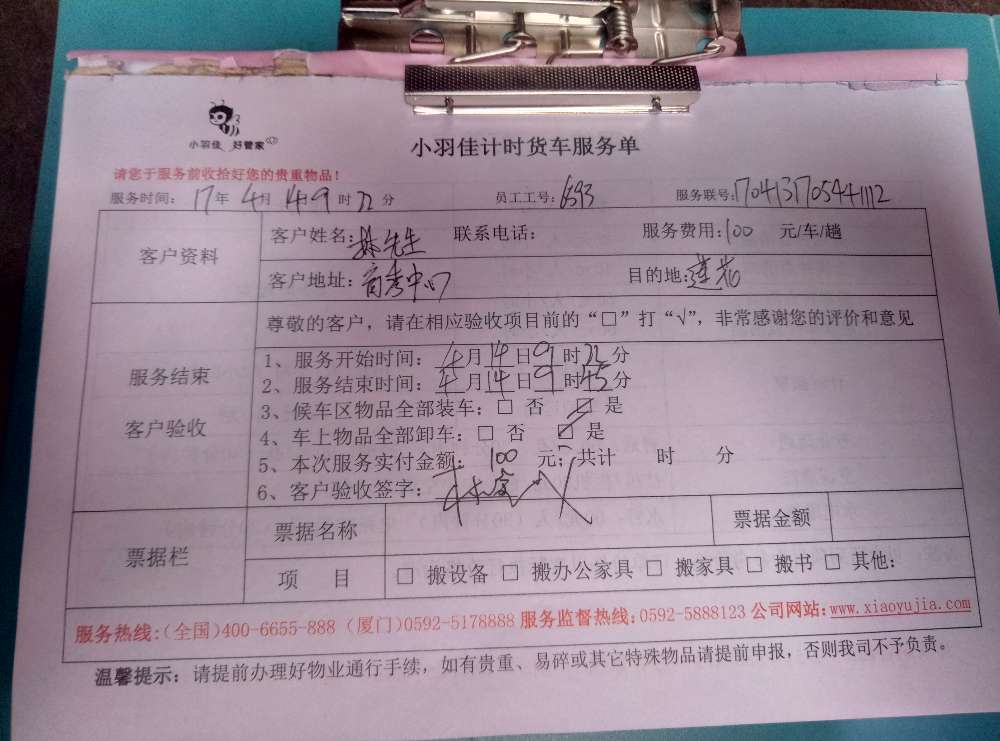 小羽佳 好管家
小羽佳计时货车服务单
请您于服务前收拾好您的贵重物品！
服务时间： 17年 4月 14日9时22分 员工工号：6593 服务联号：
客户资料 客户姓名：林先生 联系电话： 服务费用：100 元/车/趟
客户地址：高考中心 目的地：莲花
尊敬的客户，请在相应验收项目前的“□”打“√”，非常感谢您的评价和意见
服务结束
客户验收
1、服务开始时间：4月14日9时22分
2、服务结束时间：4月14日9时45分
3、候车区物品全部装车：□ 否 ☑ 是
4、车上物品全部卸车：□ 否 ☑ 是
5、本次服务实付金额：100 元；共计 时 分
6、客户验收签字：
票据栏 票据名称 票据金额
项 目 □ 搬设备 □ 搬办公家具 □ 搬家具 □ 搬书 □ 其他：
服务热线：（全国）400-6655-888（厦门）0592-5178888 服务监督热线：0592-5888123 公司网站：www.xiaoyujia.com
温馨提示：请提前办理好物业通行手续，如有贵重、易碎或其它特殊物品请提前申报，否则我司不予负责。